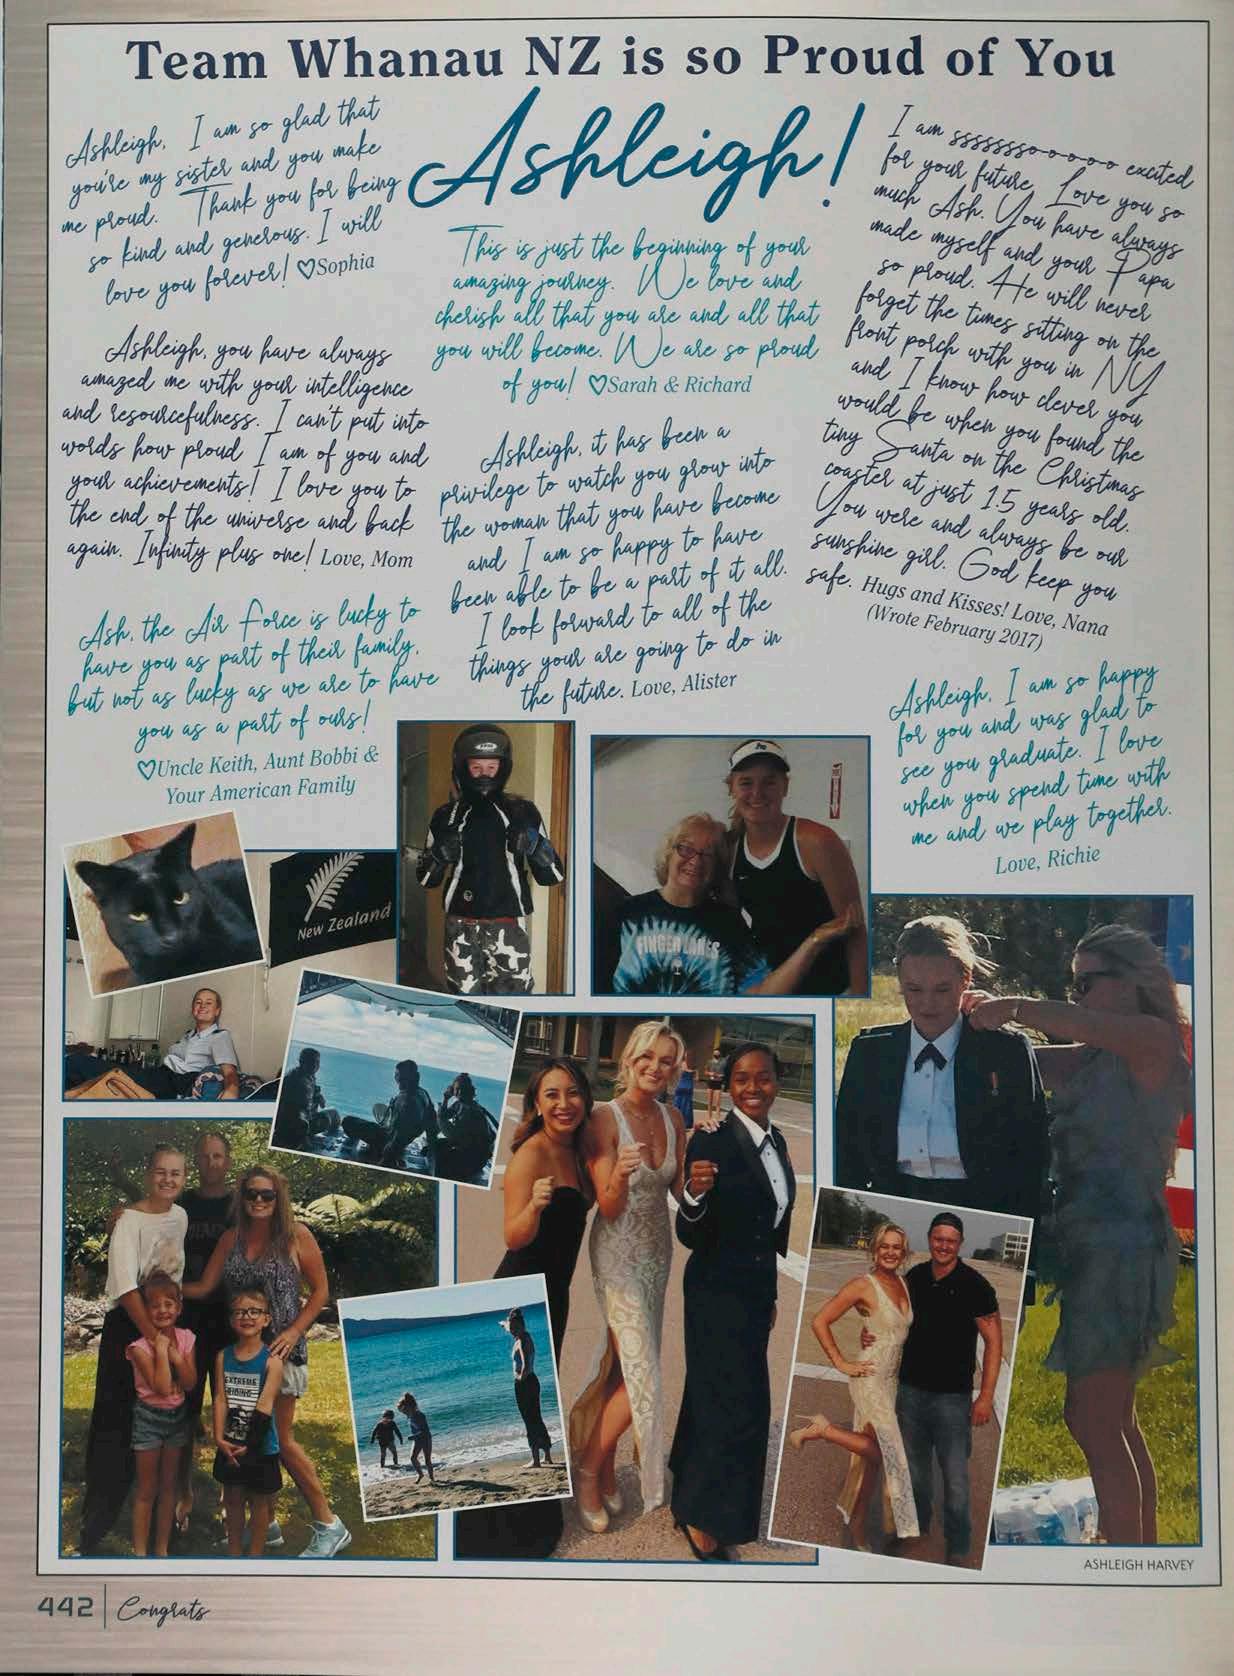 Team Whanau NZ is so Proud of You
Ashleigh!
Ashleigh, I am so glad that
you're my sister and you make
me proud. Thank you for being
so kind and generous. I will
love you forever! ♡Sophia
Ashleigh, you have always
amazed me with your intelligence
and resourcefulness. I can't put into
words how proud I am of you and
your achievements! I love you to
the end of the universe and back
again. Infinity plus one! Love, Mom
Ash, the Air Force is lucky to
have you as part of their family,
but not as lucky as we are to have
you as a part of ours!
♡Uncle Keith, Aunt Bobbi &
Your American Family
This is just the beginning of your
amazing journey. We love and
cherish all that you are and all that
you will become. We are so proud
of you! ♡Sarah & Richard
Ashleigh, it has been a
privilege to watch you grow into
the woman that you have become
and I am so happy to have
been able to be a part of it all.
I look forward to all of the
things your are going to do in
the future. Love, Alister
I am ssssssssooooo excited
for your future. Love you so
much Ash. You have always
made myself and your Papa
so proud. He will never
forget the times sitting on the
front porch with you in NY
and I know how clever you
would be when you found the
tiny Santa on the Christmas
coaster at just 1.5 years old.
You were and always be our
sunshine girl. God keep you
safe. Hugs and Kisses! Love, Nana
(Wrote February 2017)
Ashleigh, I am so happy
for you and was glad to
see you graduate. I love
when you spend time with
me and we play together.
Love, Richie
New Zealand
FINGER LAKES
EXTREME
RIDING
ASHLEIGH HARVEY
442 Congrats